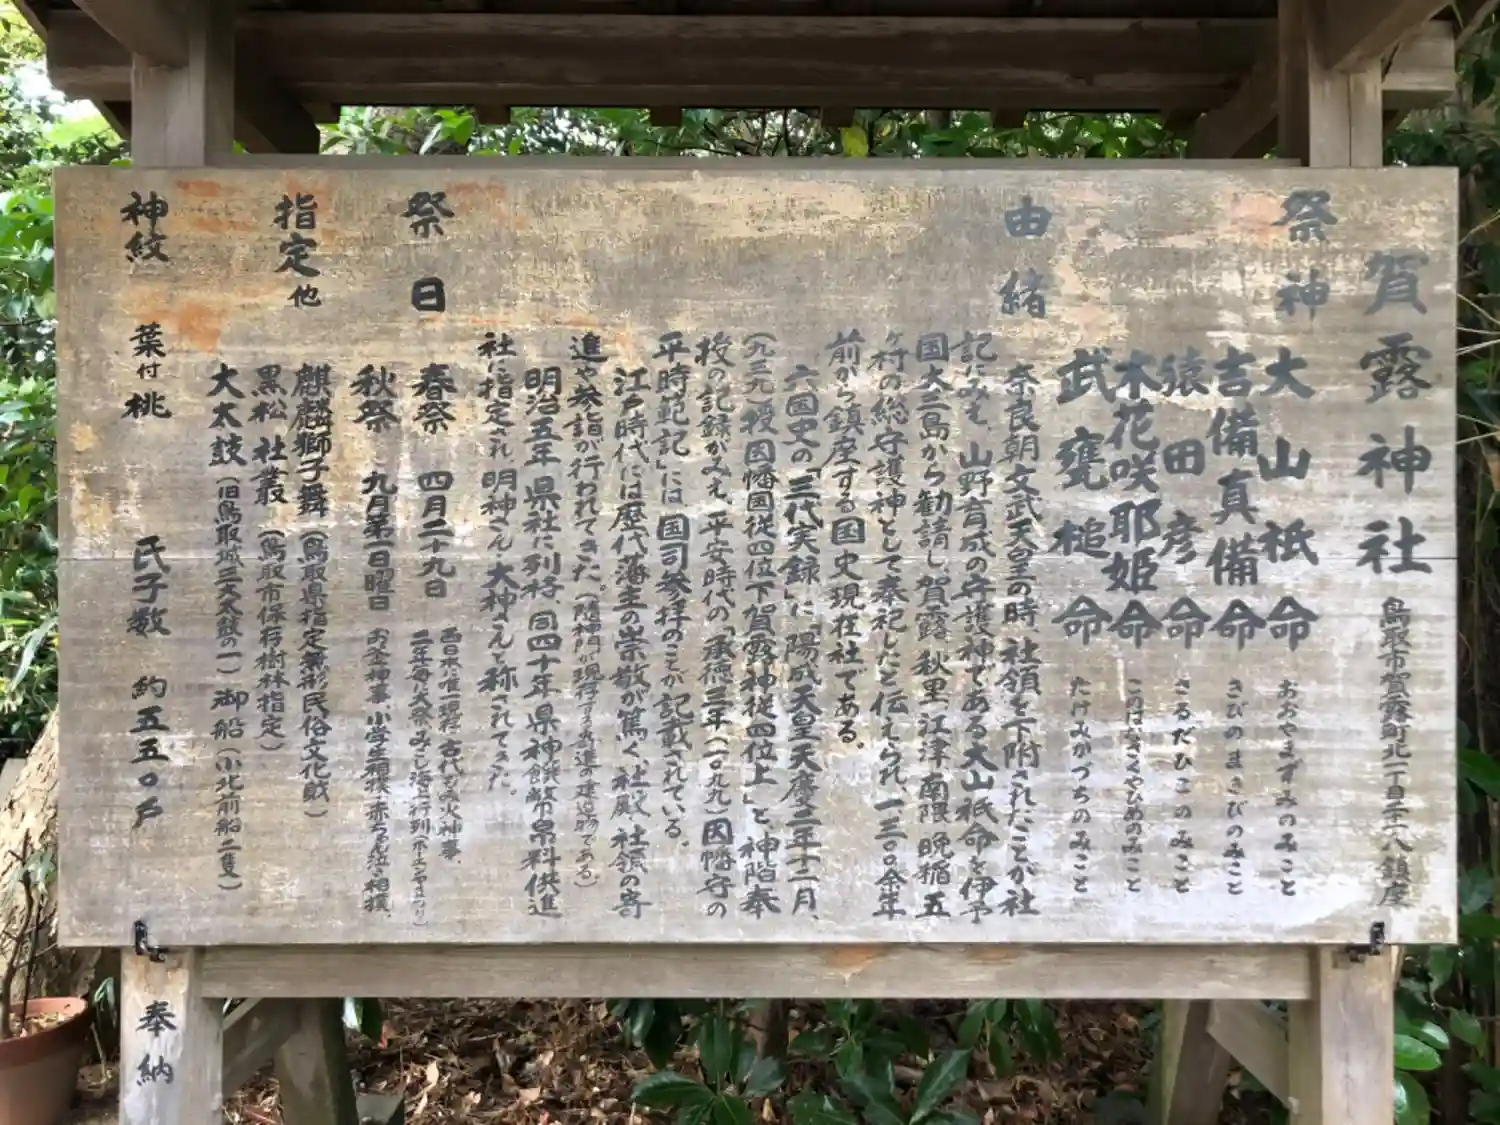 賀露神社 鳥取市賀露町北一丁目二十一八鎮座
祭神 大山祇命 おおやまずみのみこと
吉備真備命 きびのまきびのみこと
猿田彦命 さるだひこのみこと
木花咲耶姫命 このはなさくやひめのみこと
武甕槌命 たけみかづちのみこと
由緒
奈良朝文武天皇の時、社領を下附されたことが社
記にみえ、山野育成の守護神である大山祇命を伊予
国大三島から勧請し賀露、秋里、江津、南隈、晩稲五
ヶ村の総守護神として奉祀したと伝えられ、一三〇〇余年
前から鎮座する国史現在社である。
六国史の「三代実録」に「陽成天皇天慶二年十二月、
(九三九)授因幡国従四位下賀露神従四位上」と神階奉
授の記録がみえ、平安時代の「承徳三年(一〇九九)因幡守の
平時範記」には国司参拝のことが記載されている。
江戸時代には歴代藩主の崇敬が篤く、社殿、社領の寄
進や参詣が行われてきた。(随神門が現存する寄進の建造物である)
明治五年県社に列格、同四十年県神饌幣帛料供進
社に指定され、明神さん、大神さんと称されてきた。
祭日 春祭 四月二十九日 西日本に唯一現存、古代ホーの火神事、
二年毎に大祭、みこし海上行列(ホーエンヤまつり)
秋祭 九月第一日曜日 お釜神事、小学生相撲、赤ちゃん泣き相撲、
指定他 麒麟獅子舞(鳥取県指定無形民俗文化財)
黒松 社叢(鳥取市保存樹林指定)
大太鼓(旧鳥取城三大太鼓の一) 御船(小北前船二隻)
神紋 葉付桃 氏子数 約五五〇戸
奉納